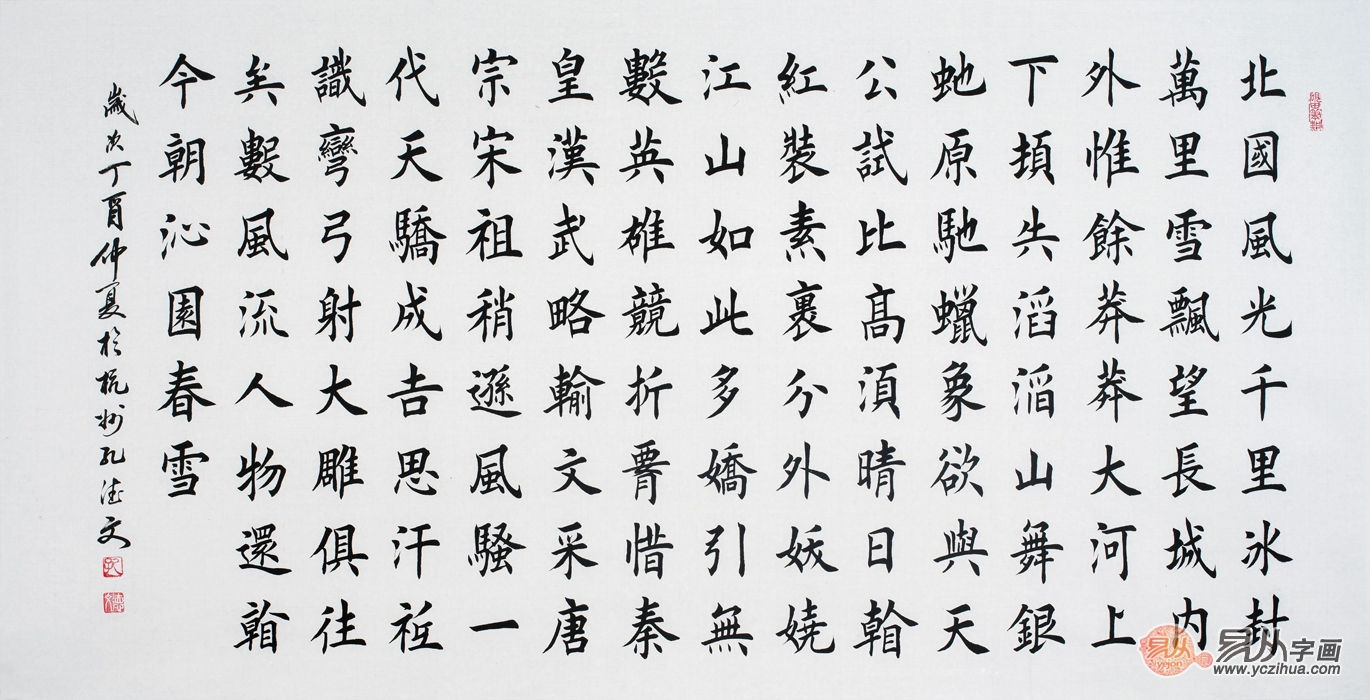 北國風光千里冰封
萬里雪飄望長城內
外惟餘莽莽大河上
下頓失滔滔山舞銀
虵原馳蠟象欲與天
公試比高須晴日看
紅裝素裹分外妖嬈
江山如此多嬌引無
數英雄競折腰惜秦
皇漢武略輸文采唐
宗宋祖稍遜風騷一
代天驕成吉思汗祗
識彎弓射大雕俱往
矣數風流人物還看
今朝沁園春雪
歲次丁酉仲夏於杭州孔德文
易从字画
www.yczihua.com